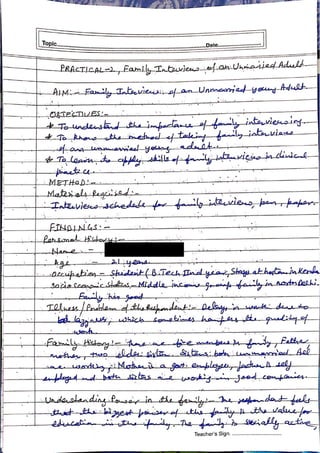 Topic Date
PRACTICAL-2, Family Interview of an Unmarried Adult
AIM:- Family Interview of an Unmarried young Adult.
OBJECTIVES:-
* To understand the importance of family interviewing.
* To know the method of taking family interviews
of an unmarried young adult.
* To learn to apply skills of family interview in clinical
practice.
METHOD:-
Materials Required:-
Interview schedule for family interview, pen, paper.
FINDINGS:-
Personal History:-
Name -
Age - 21 years
Occupation - Student (B.Tech IInd year, Stays at hostel in Kerala
Socio economic status - Middle income group family in North Delhi.
Family his good
Illness/Problem of the Respondent:- Delay in work due to
laziness, which sometimes hampers the quality of
work.
Family History:- There are five members in family, Father,
mother, two elder sisters. Sisters both unmarried. All
are working. Mother is a govt. employee, father is self
employed and both sisters are working in good companies.
Understanding Power in the family:- The respondent feels
that the biggest power of the family is the value for
education in the family. The family is socially active,
Teacher's Sign